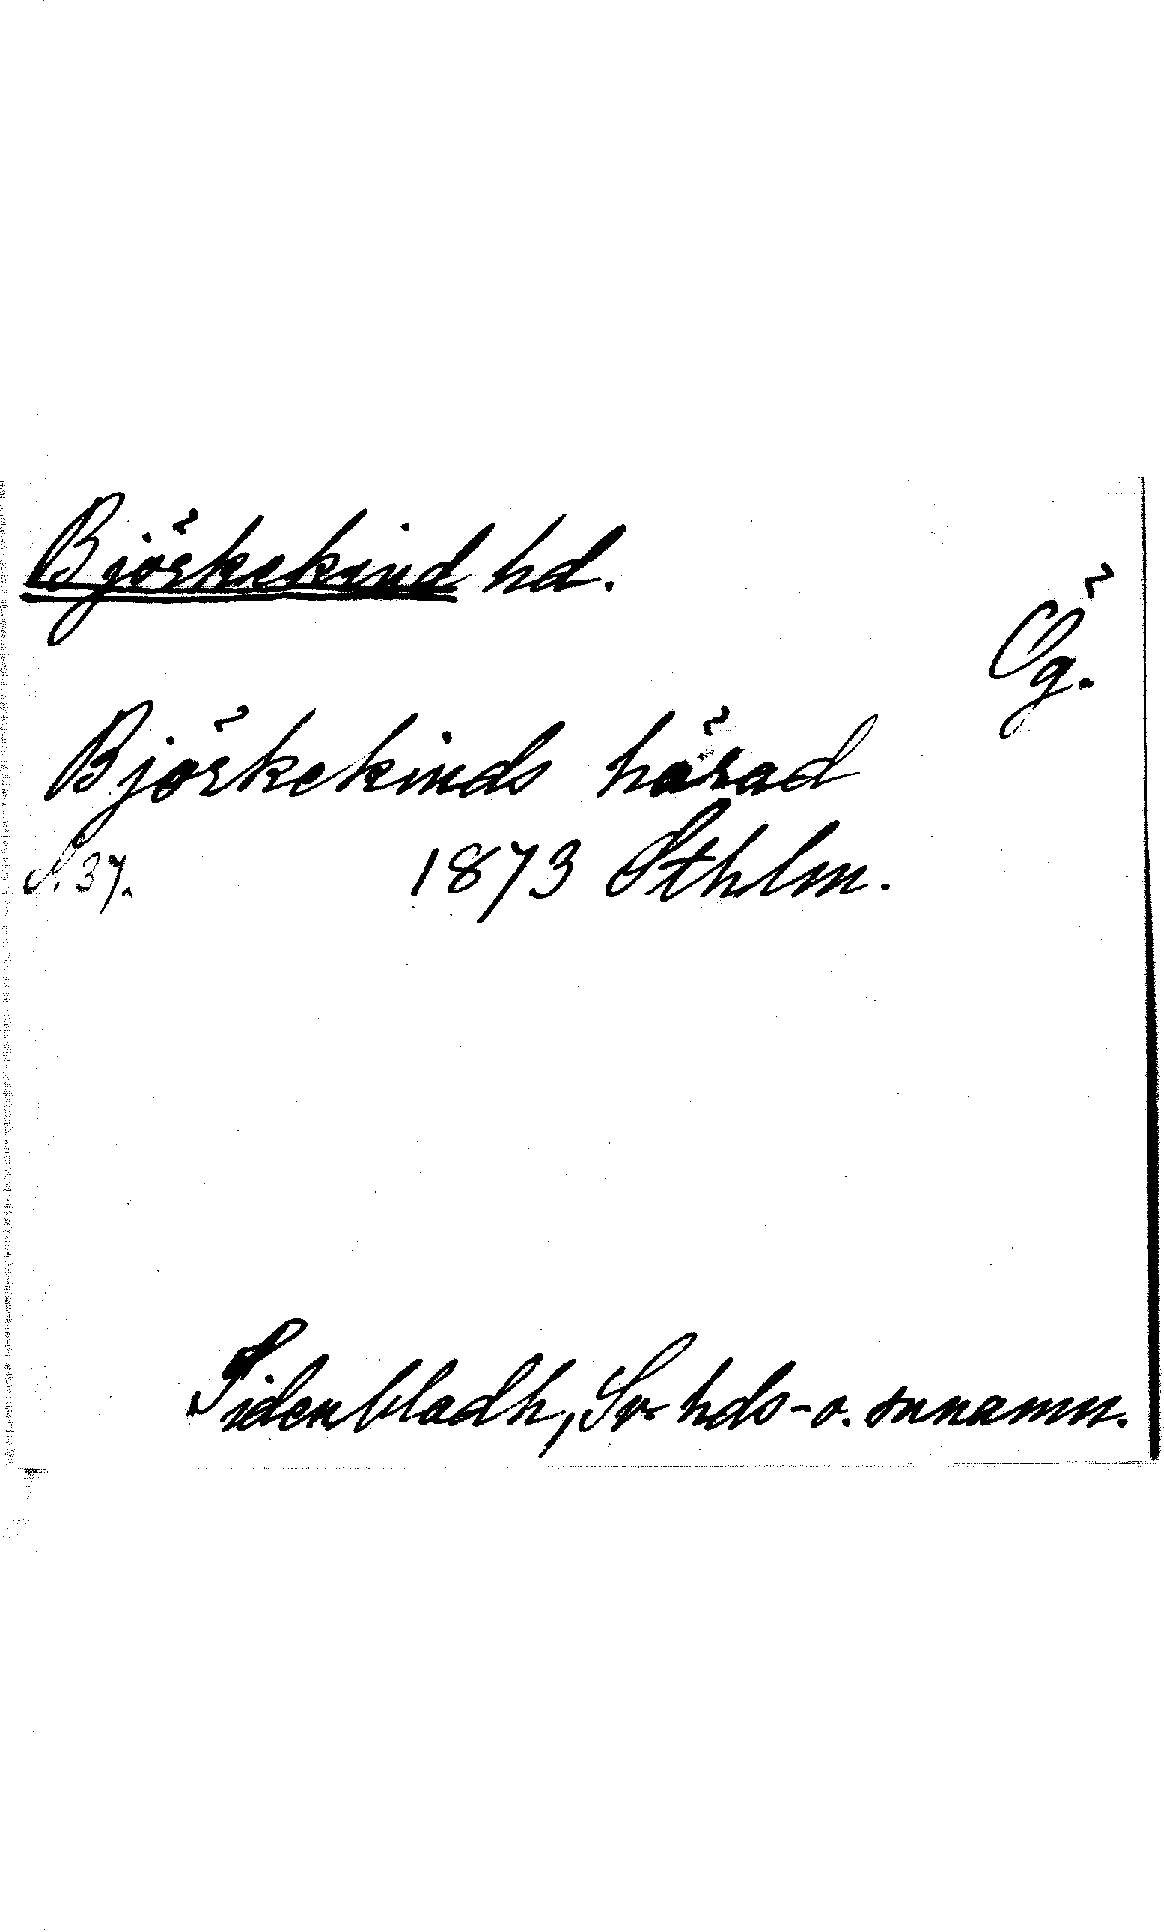 Björkekind hd.
Ög.
Björkekinds härad
S. 37. 1873 Sthlm.
Sidenbladh, Sv hds- o. snnamn.